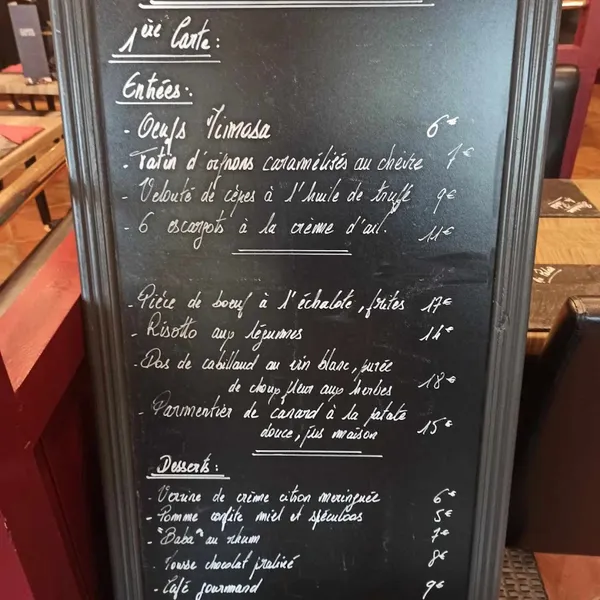 1ère Carte :
Entrées :
- Oeufs Mimosa 6€
- Tatin d'oignons caramélisés au chèvre 7€
- Velouté de cèpes à l'huile de truffe 9€
- 6 escargots à la crème d'ail. 11€
- Pièce de boeuf à l'échalote, frites 17€
- Risotto aux légumes 14€
- Dos de cabillaud au vin blanc, purée
de chou fleur aux herbes 18€
- Parmentier de canard à la patate
douce, jus maison 15€
Desserts :
- Verrine de crème citron meringuée 6€
- Pomme confite miel et spéculoos 5€
- "Baba" au rhum 7€
- Mousse chocolat praliné 8€
- Café gourmand 9€